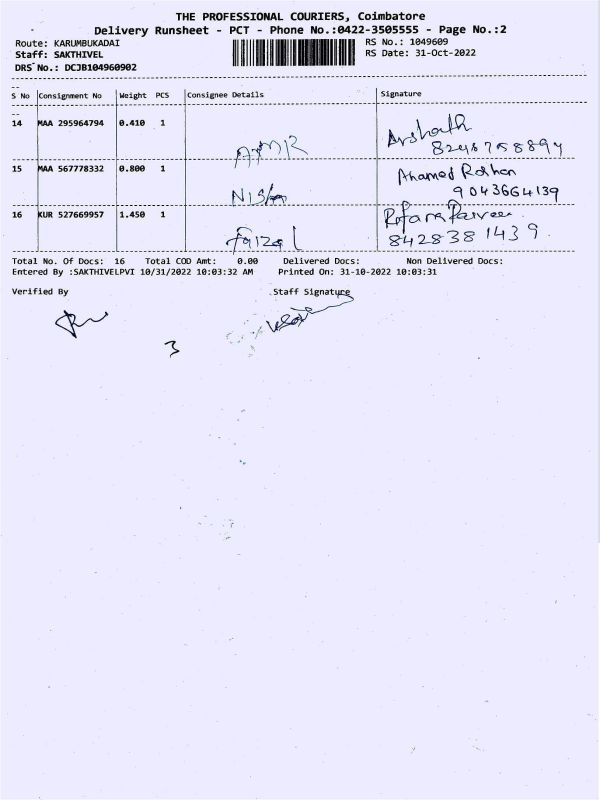 THE PROFESSIONAL COURIERS, Coimbatore
Delivery Runsheet - PCT - Phone No.:0422-3505555 - Page No.:2
Route: KARUMBUKADAI
RS No.: 1049609
Staff: SAKTHIVEL
RS Date: 31-Oct-2022
DRS No.: DCJB104960902
S No Consignment No Weight PCS Consignee Details Signature
14 MAA 295964794 0.410 1
Arshath
AMR
15 MAA 567778332 0.800 1
Ahamed Roshan
9043664139
Nisha
16 KUR 527669957 1.450 1
Faizal
8428381439
Total No. Of Docs: 16 Total COD Amt: 0.00 Delivered Docs: Non Delivered Docs:
Entered By :SAKTHIVELPVI 10/31/2022 10:03:32 AM Printed On: 31-10-2022 10:03:31
Verified By .Staff Signature
3